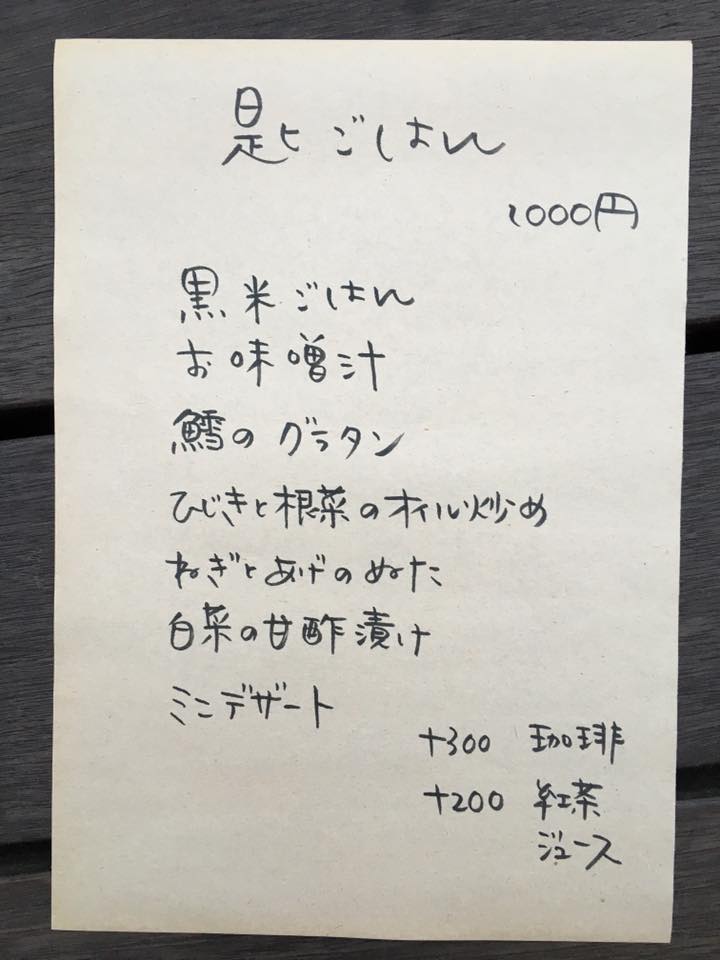 匙ごはん
1000円
黒米ごはん
お味噌汁
鱈のグラタン
ひじきと根菜のオイル炒め
ねぎとあげのぬた
白菜の甘酢漬け
ミニデザート
+300 珈琲
+200 紅茶
ジュース